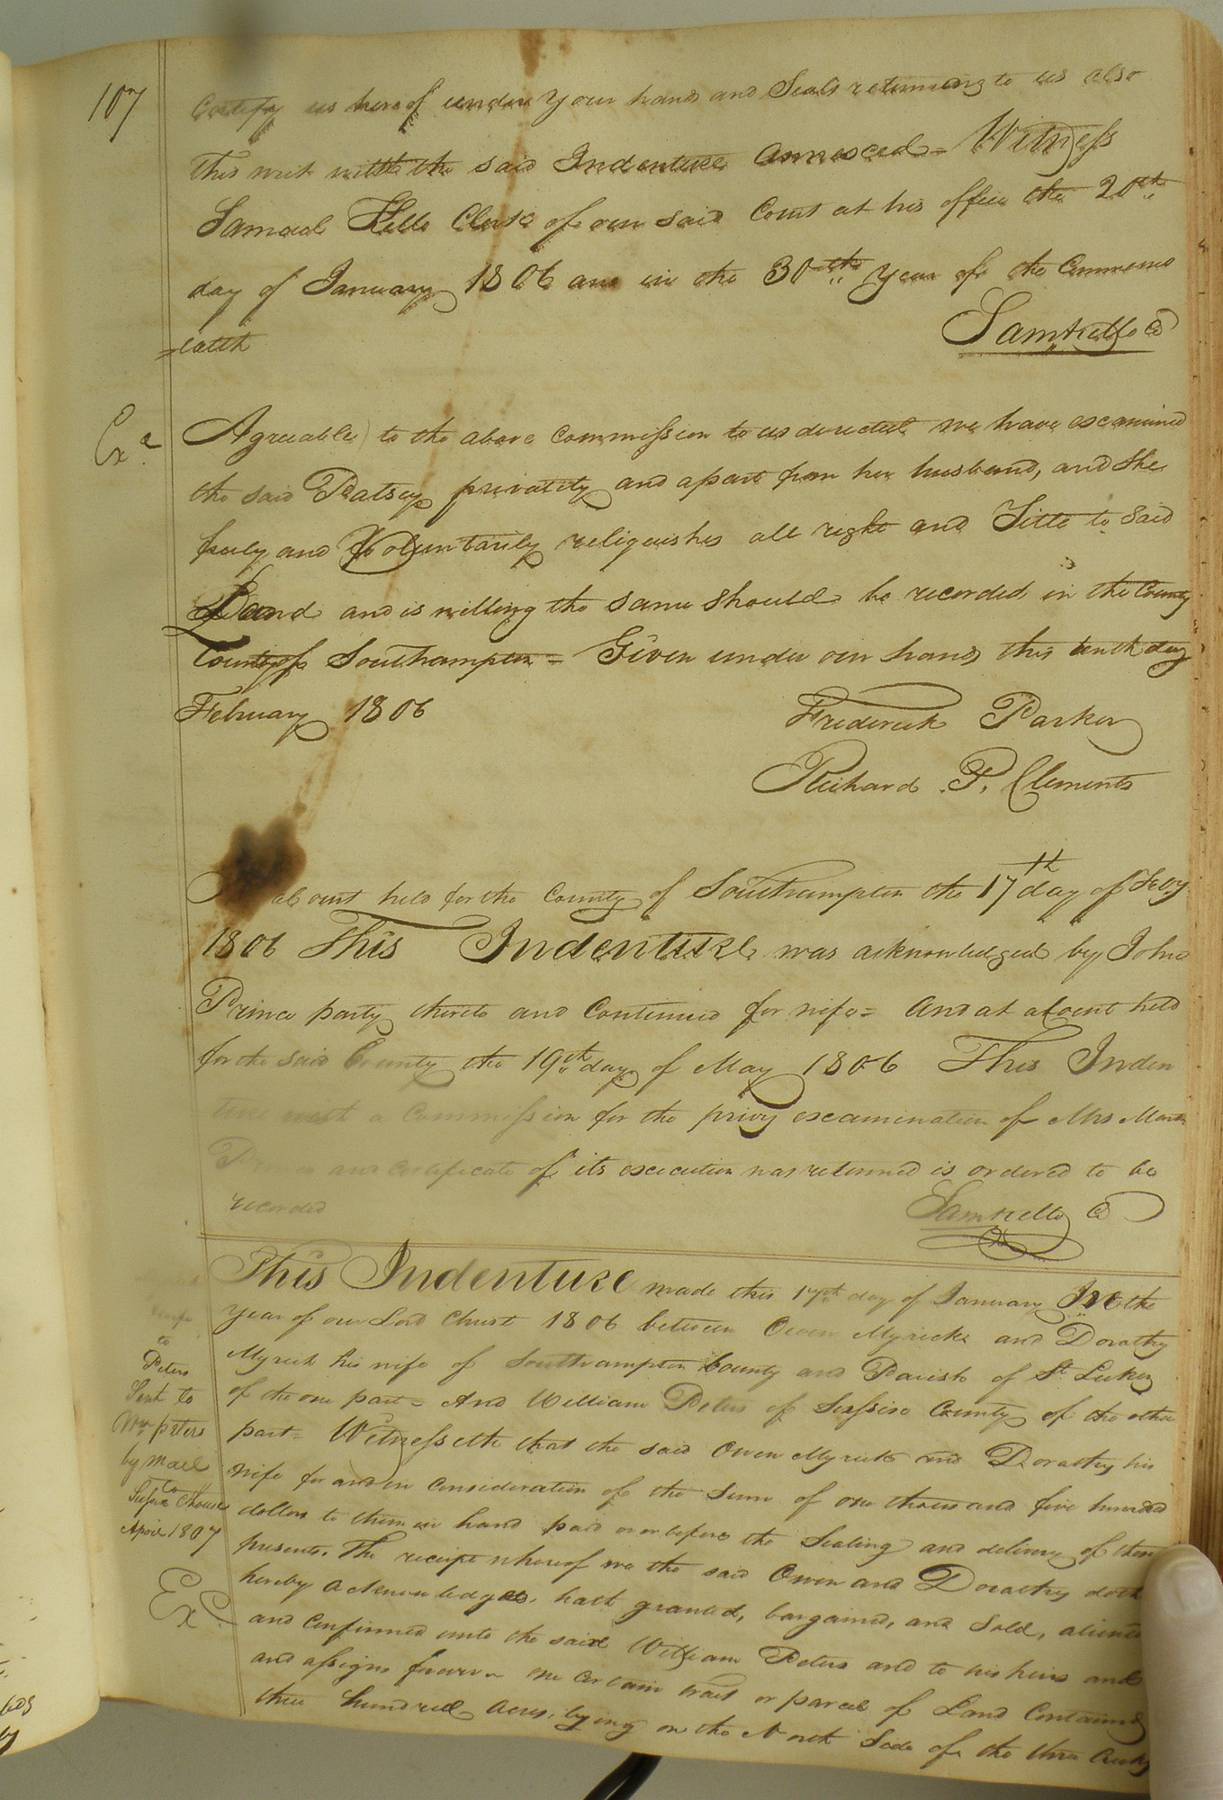 107
Certify us hereof under your hands and Seals returning to us also
this writ with the said Indenture annexced = Witness
Samuel Kello Clerk of our said Court at his office the 20th
day of January 1806 and in the 30th year of the Common
=ealth
Saml Kello CC
Exd
Agreeable to the above Commission to us directed we have excamined
the said Patsey privately and apart from her husband, and she
freely and Voluntarily reliquishes all right and Title to said
Land and is willing the same should be recorded in the County
County of Southampton = Given under our hands this tenth day
February 1806
Frederick Parker
Richard P. Clements
a Court held for the County of Southampton the 17th day of Feby
1806 This Indenture was acknowledged by John
Prince party thereto and Continued for wife = And at a Court held
for the said County the 19th day of May 1806 This Inden
ture with a Commission for the privy excamination of Mrs
Prince and Certificate of its excecution was returned is ordered to be
recorded
Saml Kello CC
This Indenture made this 17th day of January In the
year of our Lord Christ 1806 between Owen Myrick and Dorathy
Myrick his wife of Southampton County and Parish of St Lukes
of the one part = And William Peters of Sussex County of the other
part = Witnesseth that the said Owen Myrick and Dorathy his
wife for and in Consideration of the Sum of one thousand five hundred
dollars to them in hand paid or before the Sealing and delivery of these
presents. The receipt whereof we the said Owen and Dorathy doth
hereby acknowledge, hath granted, bargained, and Sold, aliened
and Confirmed unto the said William Peters and to his heirs and
and assigns forever = one certain tract or parcel of Land Containing
three hundred acres, lying on the North Side of the three Creeks
to
Peters
Sent to
Wm peters
by mail
to
Chouse
April 1807
Ex